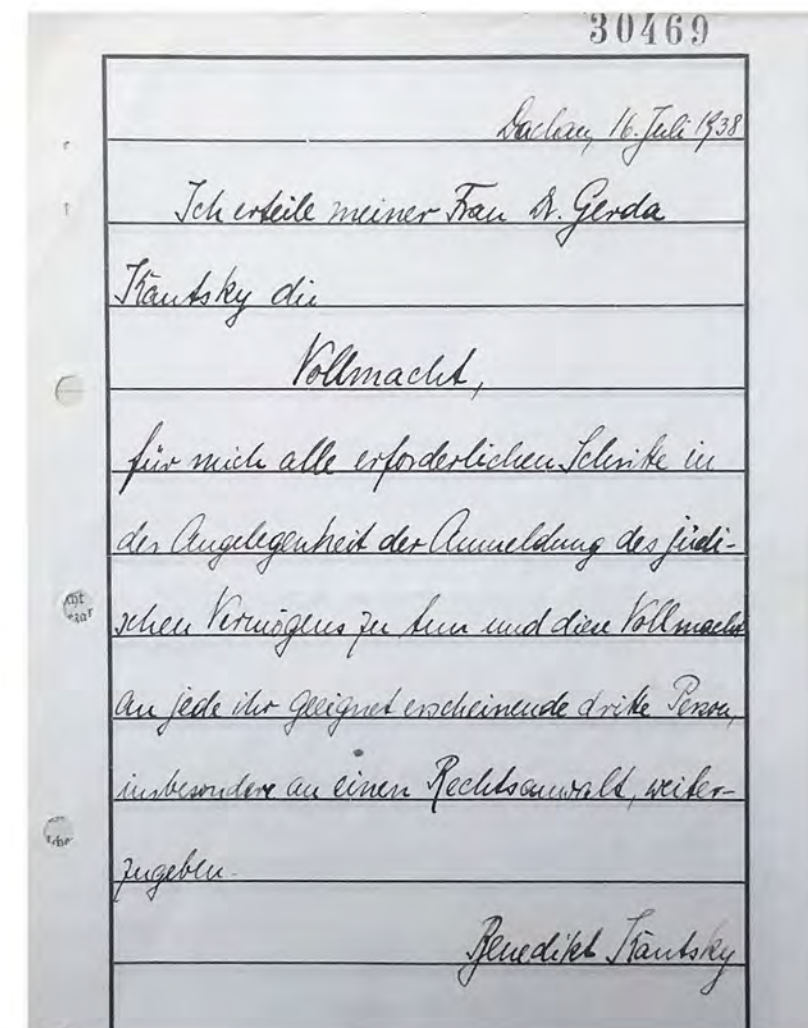 30469
Dachau, 16. Juli 1938
Ich erteile meiner Frau Dr. Gerda
Kautsky die
Vollmacht,
für mich alle erforderlichen Schritte in
der Angelegenheit der Anmeldung des jüdi-
schen Vermögens zu tun und diese Vollmacht
an jede ihr geeignet erscheinende dritte Person,
insbesondere an einen Rechtsanwalt, weiter-
zugeben.
Benedikt Kautsky